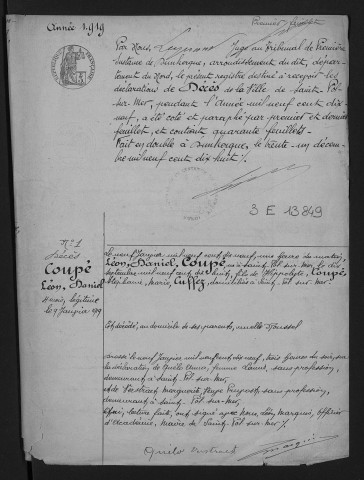 Premier feuillet
Année 1919
Par Nous, Juge au Tribunal de Première
Instance de Dunkerque, arrondissement du dit, dépar-
tement du Nord, le présent registre destiné à recevoir les
déclarations de Décès de la Ville de Saint-Pol-
sur-Mer, pendant l'Année mil neuf cent dix
neuf, a été coté et paraphé par premier et dernier
feuillet, et contient quarante feuillets.
Fait en double à Dunkerque, le trente-un décem-
bre mil neuf cent dix huit.
3 E 13849
N° 1
Décès
Coupé
Léon, Daniel
le 9 Janvier 1919
Le neuf Janvier mil neuf cent dix neuf, une heure du matin,
Léon, Daniel, Coupé, né à Saint-Pol-sur-Mer le dix
septembre mil neuf cent dix huit, fils de Hippolyte, Coupé
Stéphanie, Marie, Cuffez, domiciliés à Saint-Pol-sur-Mer
est décédé, au domicile de ses parents, ruelle Roussel
Dressé le neuf Janvier, mil neuf cent dix neuf, trois heures du soir, sur
la déclaration, de Quélo Anna, femme, sans profession,
demeurant à Saint-Pol-sur-Mer,
et de Marguerite, sans profession,
demeurant à Saint-Pol-sur-Mer,
Qui, lecture faite, ont signé avec nous, Léon Marquis, Officier
d'Académie, Maire de Saint-Pol-sur-Mer